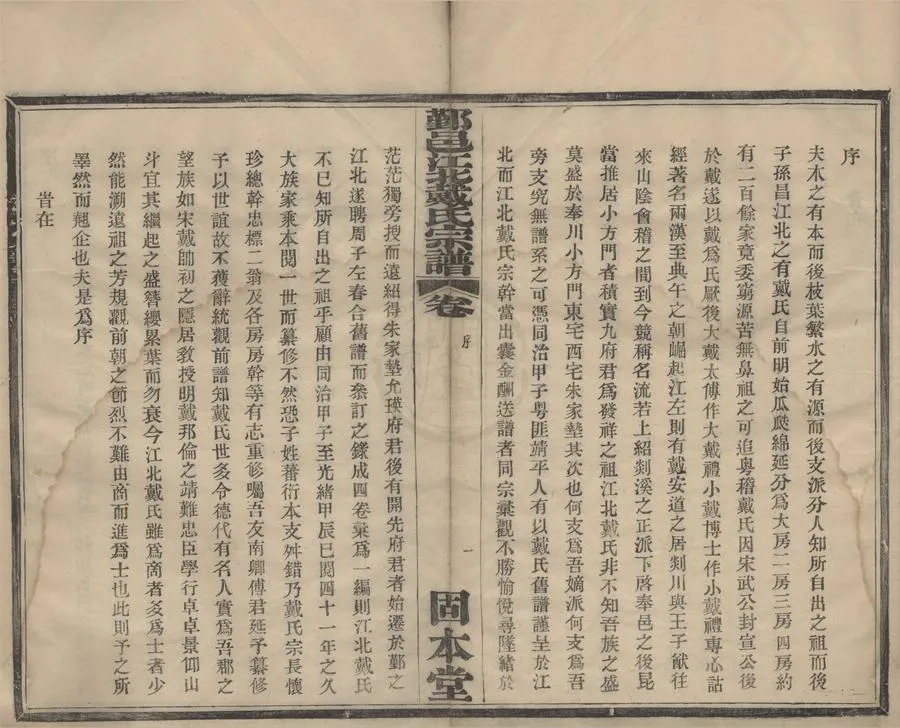 序
夫木之有本而後枝葉繁水之有源而後支派分人知所自出之祖而後
子孫昌江北之有戴氏自前明始瓜瓞綿延分爲大房二房三房四房約
有二百餘家竟委窮源苦無鼻祖之可追粵稽戴氏因宋武公封宣公後
於戴遂以戴爲氏厥後大戴太傅作大戴禮小戴博士作小戴禮專心詁
經著名兩漢至典午之朝崛起江左則有戴安道之居剡川與王子猷往
來山陰會稽之間到今競稱名流若上紹剡溪之正派下啓奉邑之後昆
當推居小方門者積實九府君爲發祥之祖江北戴氏非不知吾族之盛
莫盛於奉川小方門東宅西宅朱家墊其次也何支爲吾嫡派何支爲吾
旁支究無譜系之可憑同治甲子粵匪靖平人有以戴氏舊譜謹呈於江
北而江北戴氏宗幹當出囊金酬送譜者同宗彙觀不勝愉悅尋墜緒於
鄞邑江北戴氏宗譜 卷 序 一 固本堂
茫茫獨旁搜而遠紹得朱家墊允瑛府君後有開先府君者始遷於鄞之
江北遂聘周子左春合舊譜而叅訂之鎵成四卷彙爲一編則江北戴氏
不已知所自出之祖乎顧由同治甲子至光緒甲辰已閱四十一年之久
大族家乘本閱一世而纂修不然恐子姓蕃衍本支舛錯乃戴氏宗長懷
珍總幹忠標二翁及各房房幹等有志重修囑吾友南卿傅君延予纂修
予以世誼故不獲辭統觀前譜知戴氏世多令德代有名人實爲吾郡之
望族如宋戴帥初之隱居教授明戴邦倫之靖難忠臣學行卓卓景仰山
斗宜其繼起之盛簪纓累葉而勿衰今江北戴氏雖爲商者多爲士者少
然能溯遠祖之芳規觀前朝之節烈不難由商而進爲士也此則予之所
睪然而翹企也夫是爲序
旹在